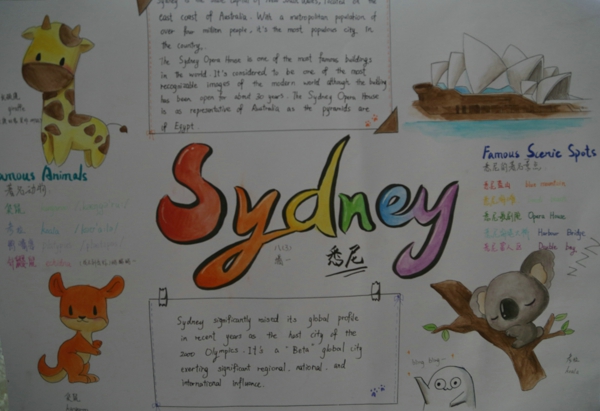 Sydney is the state capital of New South Wales, located on the
east coast of Australia. With a metropolitan population of
over four million people, it's the most populous city in
the country.
The Sydney Opera House is one of the most famous buildings
in the world. It's considered to be one of the most
recognizable images of the modern world although the building
has been open for about 30 years. The Sydney Opera House
is as representative of Australia as the pyramids are
of Egypt
giraffe
Famous Animals
悉尼动物
袋鼠 kangaroo
考拉 koala
Sydney
悉尼
Famous Scenic Spots
悉尼的著名景点
悉尼蓝山 blue mountain
悉尼歌剧院 Opera House
Harbour Bridge
Double bay
Sydney significantly raised its global profile
in recent years as the host city of the
2000 Olympics. It's a "Beta" global city
exerting significant regional, national and
international influence.
袋鼠
考拉
koala